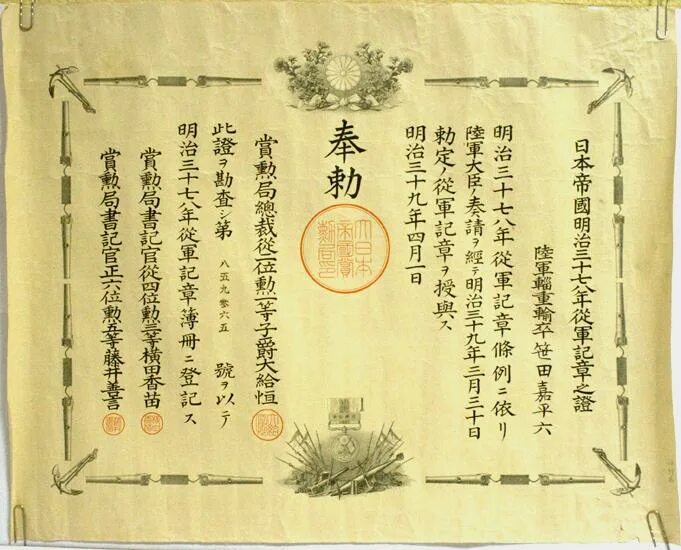 日本帝國明治三十七八年從軍記章之證
陸軍輜重輸卒笹田嘉平六
明治三十七八年從軍記章條例ニ依リ
陸軍大臣ノ奏請ヲ經テ明治三十九年三月三十日
勅定ノ從軍記章ヲ授與ス
明治三十九年四月一日
奉勅
大日本
帝國賞
勳局印
賞勲局總裁從二位勲一等子爵大給恒
此證ヲ勘査シ第八五九参六五號ヲ以テ
明治三十七八年從軍記章簿冊ニ登記ス
賞勲局書記官從四位勲三等横田香苗
賞勲局書記官正六位勲五等藤井善言